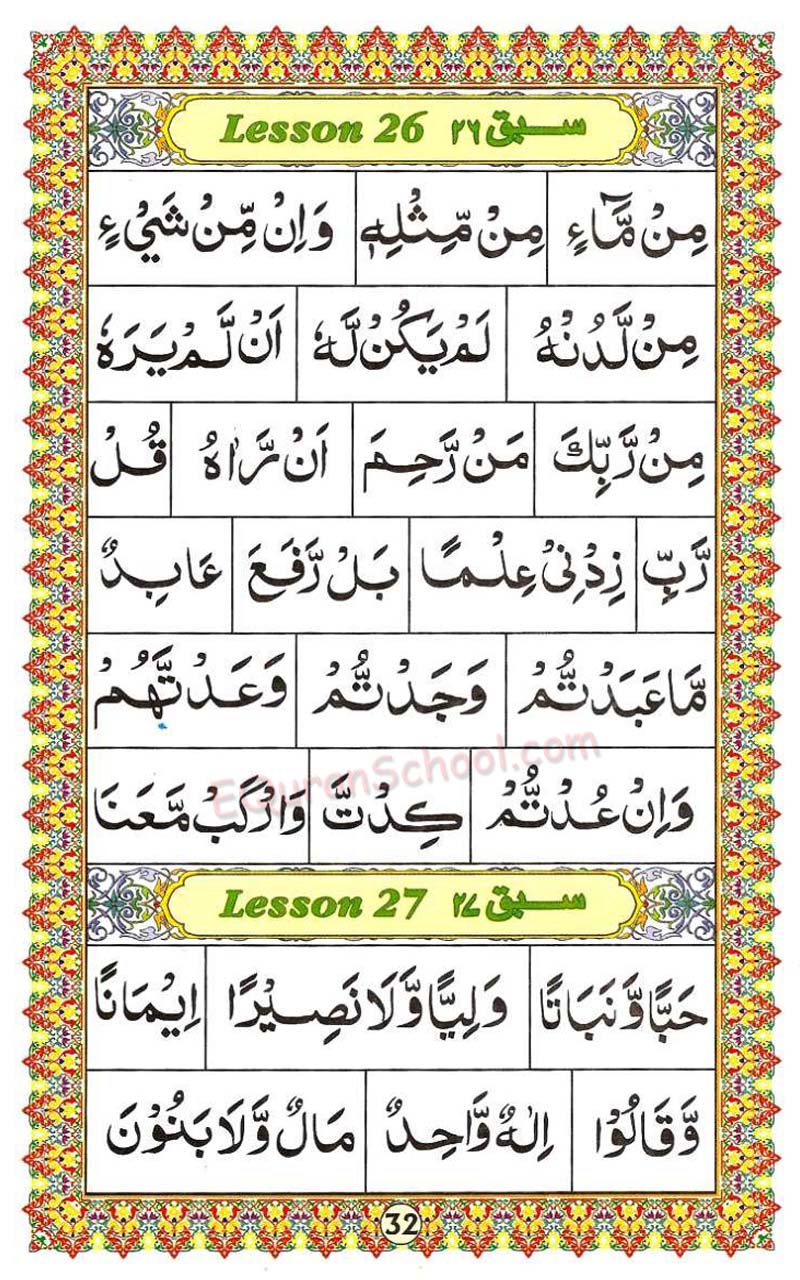 Lesson 26 سبق ۲۶
مِنْ مَّآءٍ مِنْ مِّثْلِهٖ وَاِنْ مِّنْ شَيْءٍ
مِنْ لَّدُنْهُ لَمْ يَكُنْ لَّهٗ اَنْ لَّمْ يَرَهٗ
مِنْ رَّبِّكَ مَنْ رَّحِمَ اَنْ رَّاٰهُ قُلْ
رَّبِّ زِدْنِيْ عِلْمًا بَلْ رَّفَعَ عَابِدٌ
مَّا عَبَدْتُّمْ وَجَدْتُّمْ وَعَدْتَّهُمْ
EQuranSchool.com
وَاِنْ عُدْتُّمْ كِدْتَّ وَارْكَبْ مَّعَنَا
Lesson 27 سبق ۲۷
حَبًّا وَّنَبَاتًا وَلِيًّا وَّلَا نَصِيْرًا اِيْمَانًا
وَّقَالُوْا اِلٰهٌ وَّاحِدٌ مَالٌ وَّلَا بَنُوْنَ
32